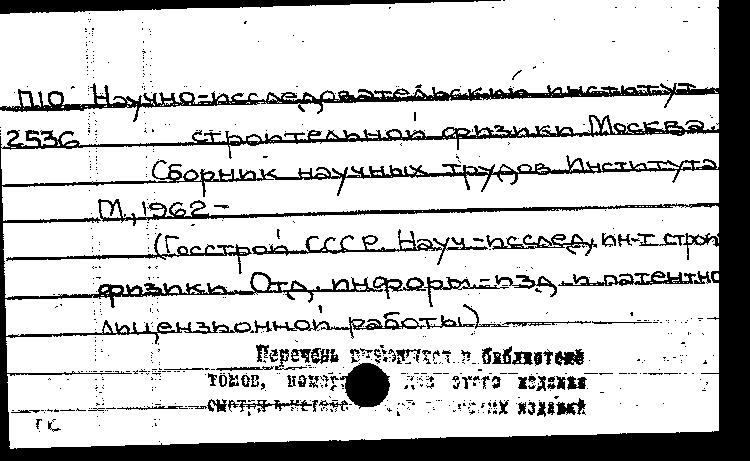 П10 Научно-исследовательский институт
2536 строительной физики Москва.
Сборник научных трудов Института
М., 1962-
(Госстрой СССР. Науч-исслед. ин-т строи
физики Отд. информ.-изд. и патентно
лицензионной работы)
Перечень имеющихся в библиотеке
томов, номеров для этого издания
смотри в каталоге изданий
ГК